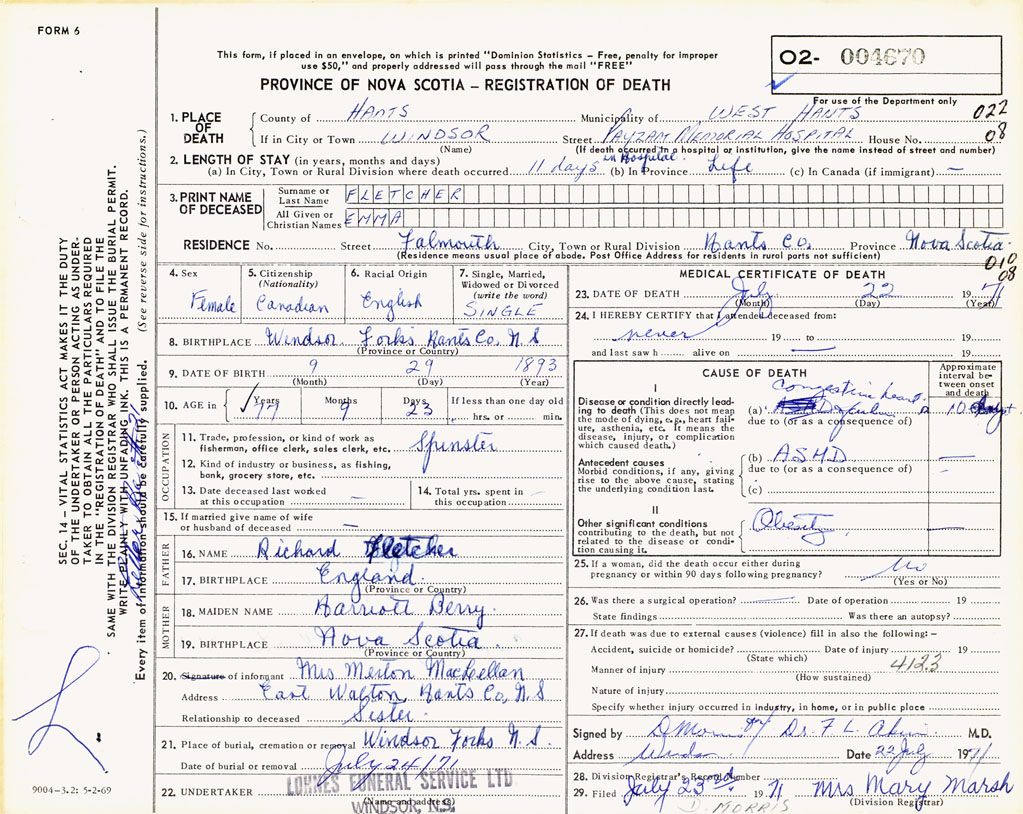 FORM 6
This form, if placed in an envelope, on which is printed "Dominion Statistics – Free, penalty for improper
use $50," and properly addressed will pass through the mail "FREE"
O2- 004670
PROVINCE OF NOVA SCOTIA – REGISTRATION OF DEATH
For use of the Department only
1. PLACE OF DEATH
County of HANTS Municipality of WEST HANTS 022
If in City or Town WINDSOR Street PAYZANT MEMORIAL HOSPITAL House No. 08
(Name) (If death occurred in a hospital or institution, give the name instead of street and number)
2. LENGTH OF STAY (in years, months and days)
(a) In City, Town or Rural Division where death occurred 11 days in Hospital. (b) In Province Life (c) In Canada (if immigrant) –
3. PRINT NAME OF DECEASED
Surname or Last Name FLETCHER
All Given or Christian Names EMMA
RESIDENCE No. Street Falmouth City, Town or Rural Division Hants Co. Province Nova Scotia
(Residence means usual place of abode. Post Office Address for residents in rural parts not sufficient)
010
08
4. Sex Female
5. Citizenship (Nationality) Canadian
6. Racial Origin English
7. Single, Married, Widowed or Divorced (write the word) SINGLE
8. BIRTHPLACE Windsor Forks Hants Co. N.S
(Province or Country)
9. DATE OF BIRTH 9 29 1893
(Month) (Day) (Year)
10. AGE in Years 77 Months 9 Days 23 If less than one day old
hrs. or min.
OCCUPATION
11. Trade, profession, or kind of work as fisherman, office clerk, sales clerk, etc. Spinster
12. Kind of industry or business, as fishing, bank, grocery store, etc.
13. Date deceased last worked at this occupation –
14. Total yrs. spent in this occupation –
15. If married give name of wife or husband of deceased –
FATHER
16. NAME Richard Fletcher
17. BIRTHPLACE England
(Province or Country)
MOTHER
18. MAIDEN NAME Harriott Berry
19. BIRTHPLACE Nova Scotia
(Province or Country)
20. Signature of informant Mrs Merton MacLellan
Address East Walton, Hants Co, N.S
Relationship to deceased Sister
21. Place of burial, cremation or removal Windsor Forks N.S.
Date of burial or removal July 24/71
22. UNDERTAKER LOHNES FUNERAL SERVICE LTD
WINDSOR, N.S.
(Name and address)
MEDICAL CERTIFICATE OF DEATH
23. DATE OF DEATH July 22 1971
(Month) (Day) (Year)
24. I HEREBY CERTIFY that I attended deceased from:
never 19 to 19
and last saw h alive on 19
CAUSE OF DEATH
Approximate interval between onset and death
I
Disease or condition directly leading to death (This does not mean the mode of dying, e.g., heart failure, asthenia, etc. It means the disease, injury, or complication which caused death.)
Congestive heart
(a)
due to (or as a consequence of)
Antecedent causes
Morbid conditions, if any, giving rise to the above cause, stating the underlying condition last.
(b) ASHD
due to (or as a consequence of)
(c)
II
Other significant conditions contributing to the death, but not related to the disease or condition causing it.
Obesity
25. If a woman, did the death occur either during pregnancy or within 90 days following pregnancy? No
(Yes or No)
26. Was there a surgical operation? – Date of operation 19
State findings Was there an autopsy?
27. If death was due to external causes (violence) fill in also the following: –
Accident, suicide or homicide? Date of injury 19
(State which)
Manner of injury 4123
(How sustained)
Nature of injury
Specify whether injury occurred in industry, in home, or in public place
Signed by Dr. F. L. M.D.
Address Windsor Date 22 July 1971
28. Division Registrar's Record Number
29. Filed July 23rd 1971 Mrs Mary Marsh
(Division Registrar)
D. MORRIS
SEC. 14 – VITAL STATISTICS ACT MAKES IT THE DUTY
OF THE UNDERTAKER OR PERSON ACTING AS UNDER-
TAKER TO OBTAIN ALL THE PARTICULARS REQUIRED
IN THE "REGISTRATION OF DEATH" AND TO FILE THE
SAME WITH THE DIVISION REGISTRAR WHO SHALL ISSUE THE BURIAL PERMIT.
WRITE PLAINLY WITH UNFADING INK. THIS IS A PERMANENT RECORD.
Every item of information should be carefully supplied. (See reverse side for instructions.)
9004-3.2: 5-2-69